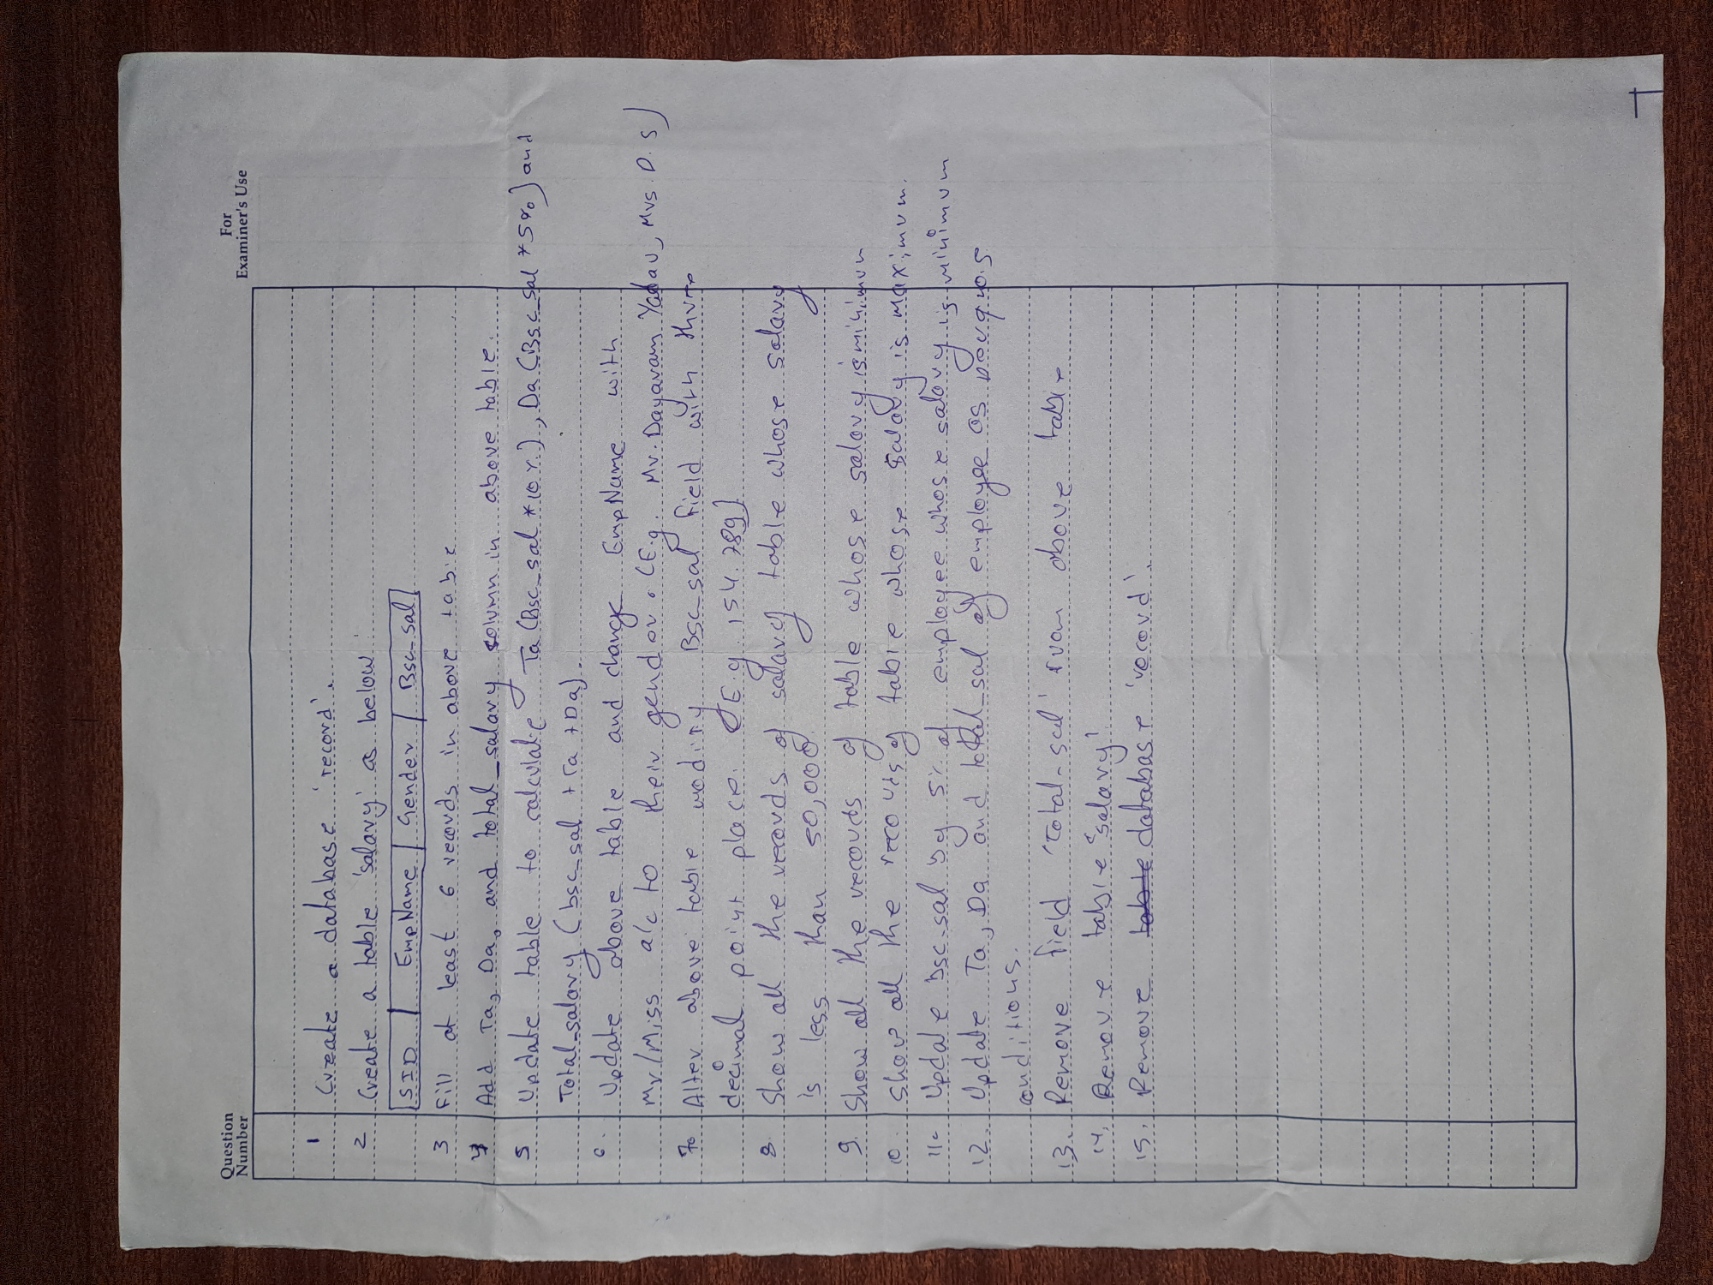 Question
Number
For
Examiner's Use
1 Create a database 'record'.
2 Create a table 'salary' as below
SID EmpName Gender Bsc_sal
3 Fill at least 6 records in above table
4 Add Ta, Da, and total_salary column in above table.
5 Update table to calculate Ta (Bsc_sal *10%), Da (Bsc_sal *5%) and
Total_salary (bsc_sal + Ta + Da).
6. Update above table and change EmpName with
Mr/Miss a/c to their gender. (E.g. Mr. Dayaram Yadav, Mrs D. S)
7. Alter above table modify Bsc_sal field with three
decimal point place. (E.g 154.789)
8 Show all the records of salary table whose salary
is less than 50,000
9. Show all the records of table whose salary is minimum
10. Show all the records of table whose salary is maximum.
11. Update bsc_sal by 5% of employee whose salary is minimum
12. Update Ta, Da and total_sal of employee as per q no. 5
conditions.
13. Remove field 'Total_sal' from above table
14. Remove table 'salary'
15. Remove table database 'record'.